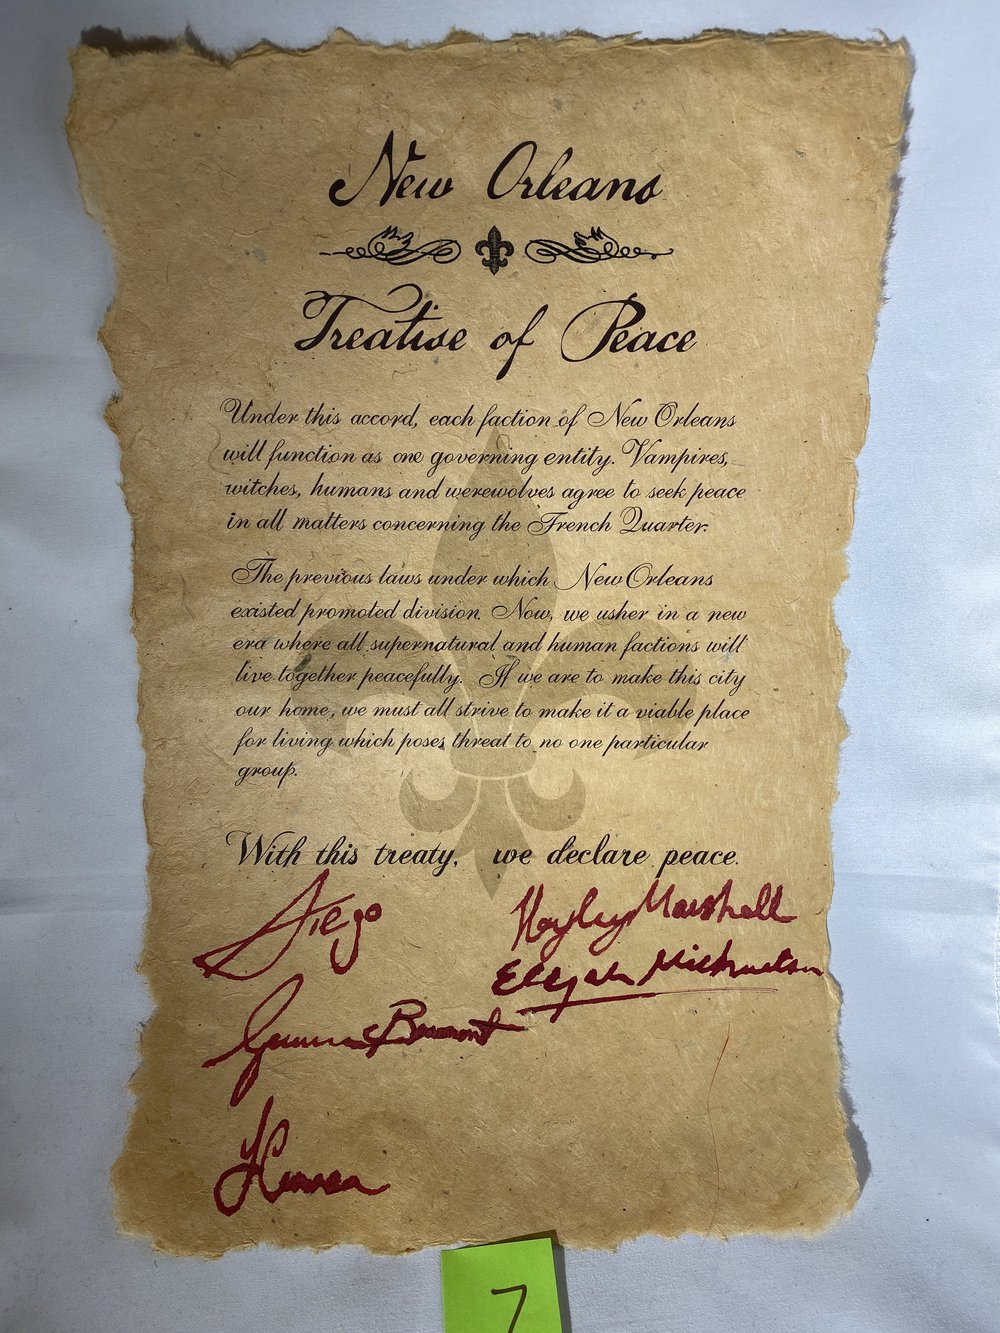 New Orleans
Treatise of Peace
Under this accord, each faction of New Orleans
will function as one governing entity. Vampires,
witches, humans and werewolves agree to seek peace
in all matters concerning the French Quarter.
The previous laws under which New Orleans
existed promoted division. Now, we usher in a new
era where all supernatural and human factions will
live together peacefully. If we are to make this city
our home, we must all strive to make it a viable place
for living which poses threat to no one particular
group.
With this treaty, we declare peace.
Diego
Hayley Marshall
Elijah
7